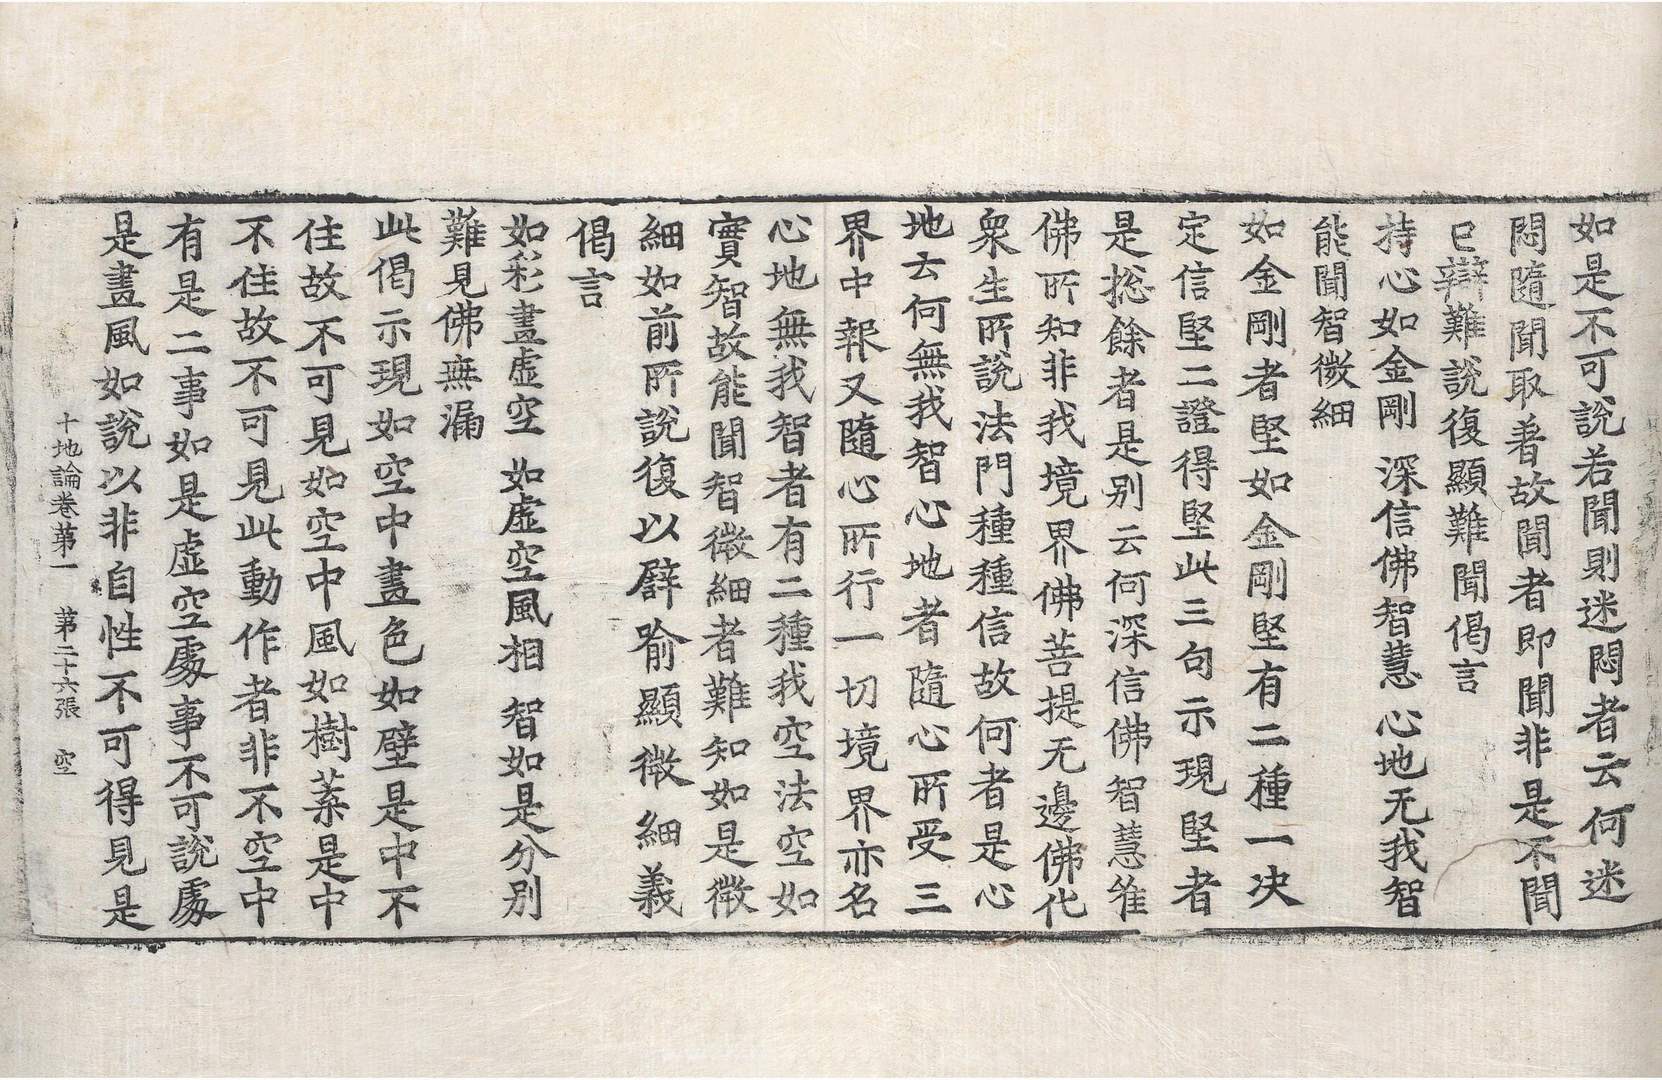 如是不可說若聞則迷悶者云何迷
悶隨聞取著故聞者即聞非是不聞
已辯難說復顯難聞偈言
持心如金剛 深信佛智慧 心地无我智
能聞智微細
如金剛者堅如金剛堅有二種一决
定信堅二證得堅此三句示現堅者
是揔餘者是别云何深信佛智慧唯
佛所知非我境界佛菩提无邊佛化
衆生所說法門種種信故何者是心
地云何無我智心地者隨心所受三
界中報又隨心所行一切境界亦名
心地無我智者有二種我空法空如
實智故能聞智微細者難知如是微
細如前所說復以譬喻顯微細義
偈言
如彩畫虛空 如虛空風相 智如是分别
難見佛無漏
此偈示現如空中畫色如壁是中不
住故不可見如空中風如樹葉是中
不住故不可見此動作者非不空中
有是二事如是虛空處事不可說處
是畫風如說以非自性不可得見是
十地論卷苐一 苐二十六張 空